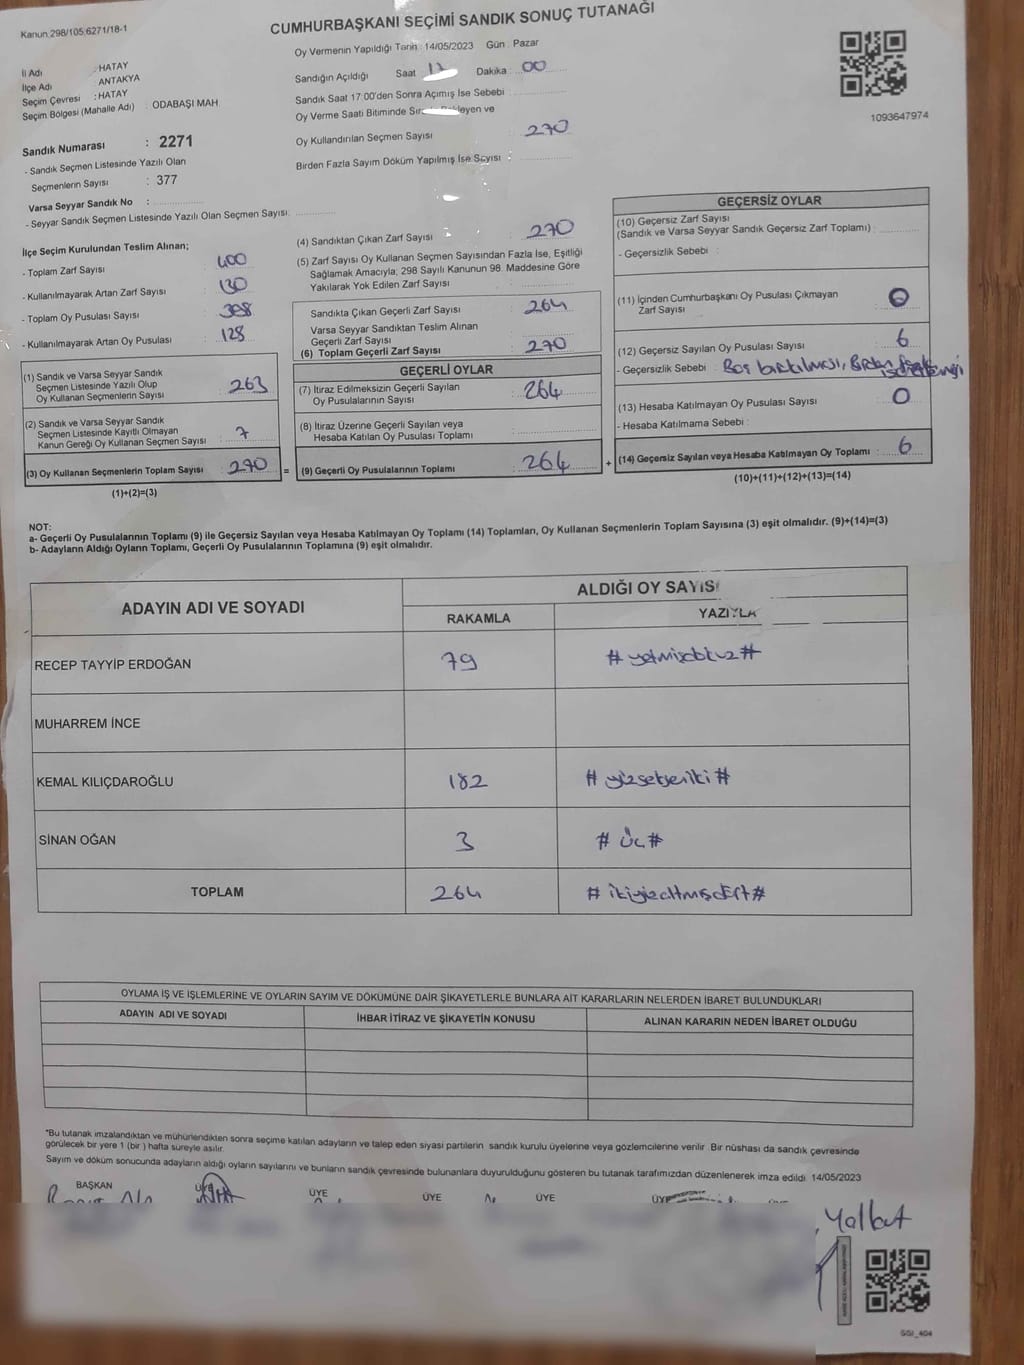 Kanun 298/105;6271/18-1
CUMHURBAŞKANI SEÇİMİ SANDIK SONUÇ TUTANAĞI
İl Adı : HATAY
İlçe Adı : ANTAKYA
Seçim Çevresi : HATAY
Seçim Bölgesi (Mahalle Adı) : ODABAŞI MAH.
Sandık Numarası : 2271
- Sandık Seçmen Listesinde Yazılı Olan
Seçmenlerin Sayısı : 377
Varsa Seyyar Sandık No :
- Seyyar Sandık Seçmen Listesinde Yazılı Olan Seçmen Sayısı:
Oy Vermenin Yapıldığı Tarih : 14/05/2023 Gün : Pazar
Sandığın Açıldığı Saat : 17 Dakika : 00
Sandık Saat 17:00'den Sonra Açımış İse Sebebi :
Oy Verme Saati Bitiminde Bekleyen ve
Oy Kullandırılan Seçmen Sayısı : 270
Birden Fazla Sayım Döküm Yapılmış İse Sayısı :
1093647974
İlçe Seçim Kurulundan Teslim Alınan;
- Toplam Zarf Sayısı : 400
- Kullanılmayarak Artan Zarf Sayısı : 130
- Toplam Oy Pusulası Sayısı : 398
- Kullanılmayarak Artan Oy Pusulası : 128
(1) Sandık ve Varsa Seyyar Sandık
Seçmen Listesinde Yazılı Olup
Oy Kullanan Seçmenlerin Sayısı : 263
(2) Sandık ve Varsa Seyyar Sandık
Seçmen Listesinde Kayıtlı Olmayan
Kanun Gereği Oy Kullanan Seçmen Sayısı : 7
(3) Oy Kullanan Seçmenlerin Toplam Sayısı : 270
(1)+(2)=(3)
(4) Sandıktan Çıkan Zarf Sayısı : 270
(5) Zarf Sayısı Oy Kullanan Seçmen Sayısından Fazla İse, Eşitliği
Sağlamak Amacıyla; 298 Sayılı Kanunun 98. Maddesine Göre
Yakılarak Yok Edilen Zarf Sayısı :
Sandıkta Çıkan Geçerli Zarf Sayısı : 264
Varsa Seyyar Sandıktan Teslim Alınan
Geçerli Zarf Sayısı :
(6) Toplam Geçerli Zarf Sayısı : 270
GEÇERLİ OYLAR
(7) İtiraz Edilmeksizin Geçerli Sayılan
Oy Pusulalarının Sayısı : 264
(8) İtiraz Üzerine Geçerli Sayılan veya
Hesaba Katılan Oy Pusulası Toplamı :
= (9) Geçerli Oy Pusulalarının Toplamı : 264 +
GEÇERSİZ OYLAR
(10) Geçersiz Zarf Sayısı
(Sandık ve Varsa Seyyar Sandık Geçersiz Zarf Toplamı) :
- Geçersizlik Sebebi :
(11) İçinden Cumhurbaşkanı Oy Pusulası Çıkmayan
Zarf Sayısı : 0
(12) Geçersiz Sayılan Oy Pusulası Sayısı : 6
- Geçersizlik Sebebi : Boş bırakılması, Birden fazla
(13) Hesaba Katılmayan Oy Pusulası Sayısı : 0
- Hesaba Katılmama Sebebi :
(14) Geçersiz Sayılan veya Hesaba Katılmayan Oy Toplamı : 6
(10)+(11)+(12)+(13)=(14)
NOT:
a- Geçerli Oy Pusulalarının Toplamı (9) ile Geçersiz Sayılan veya Hesaba Katılmayan Oy Toplamı (14) Toplamları, Oy Kullanan Seçmenlerin Toplam Sayısına (3) eşit olmalıdır. (9)+(14)=(3)
b- Adayların Aldığı Oyların Toplamı, Geçerli Oy Pusulalarının Toplamına (9) eşit olmalıdır.
ADAYIN ADI VE SOYADI
ALDIĞI OY SAYISI
RAKAMLA YAZIYLA
RECEP TAYYİP ERDOĞAN 79 #yetmişdokuz#
MUHARREM İNCE
KEMAL KILIÇDAROĞLU 182 #yüzsekseniki#
SİNAN OĞAN 3 #üç#
TOPLAM 264 #ikiyüzaltmışdört#
OYLAMA İŞ VE İŞLEMLERİNE VE OYLARIN SAYIM VE DÖKÜMÜNE DAİR ŞİKAYETLERLE BUNLARA AİT KARARLARIN NELERDEN İBARET BULUNDUKLARI
ADAYIN ADI VE SOYADI İHBAR İTİRAZ VE ŞİKAYETİN KONUSU ALINAN KARARIN NEDEN İBARET OLDUĞU
*Bu tutanak imzalandıktan ve mühürlendikten sonra seçime katılan adayların ve talep eden siyasi partilerin sandık kurulu üyelerine veya gözlemcilerine verilir. Bir nüshası da sandık çevresinde
görülecek bir yere 1 (bir) hafta süreyle asılır.
Sayım ve döküm sonucunda adayların aldığı oyların sayılarını ve bunların sandık çevresinde bulunanlara duyurulduğunu gösteren bu tutanak tarafımızdan düzenlenerek imza edildi. 14/05/2023
BAŞKAN ÜYE ÜYE ÜYE ÜYE ÜYE
Yalbut